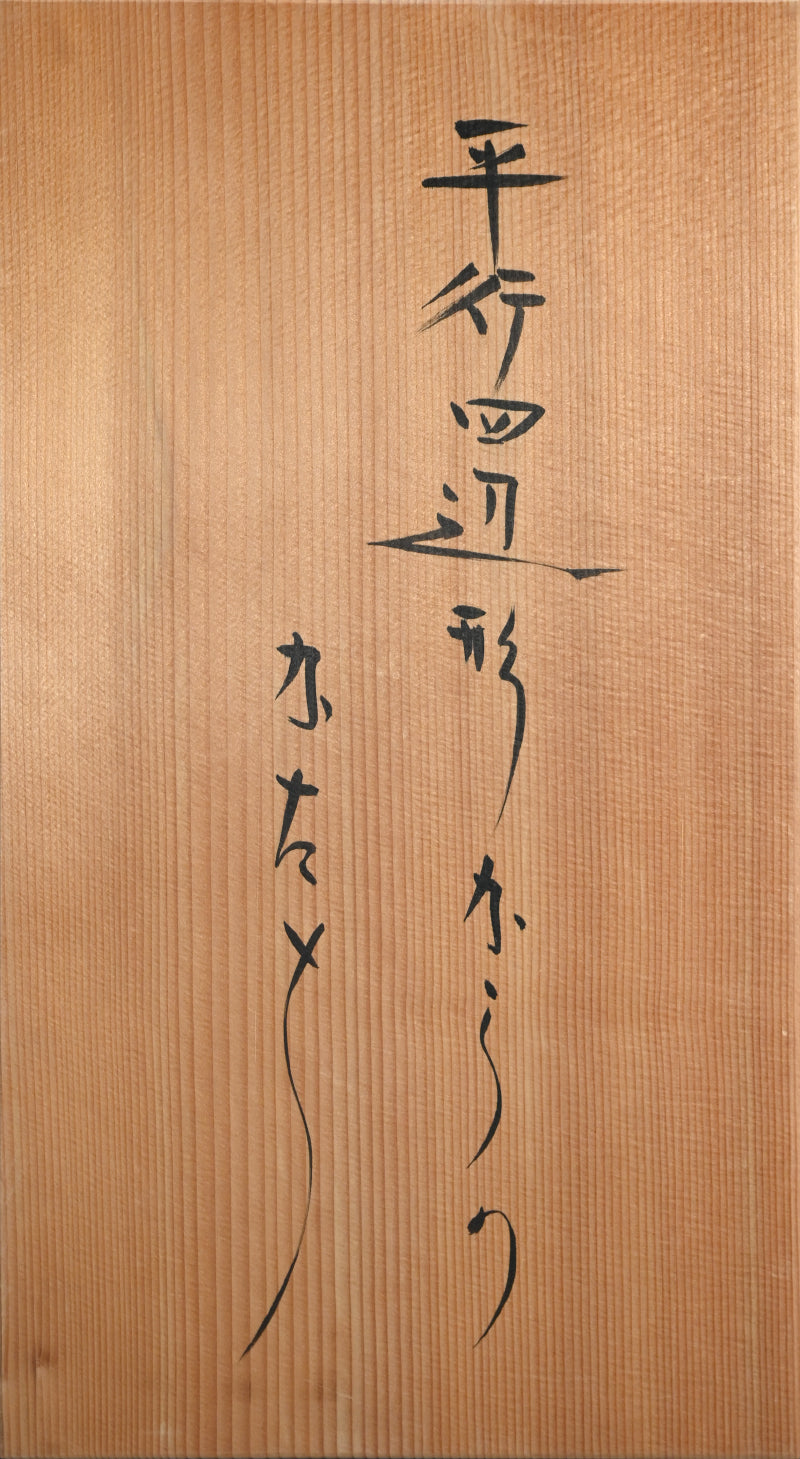 平行四辺形からの
かたち